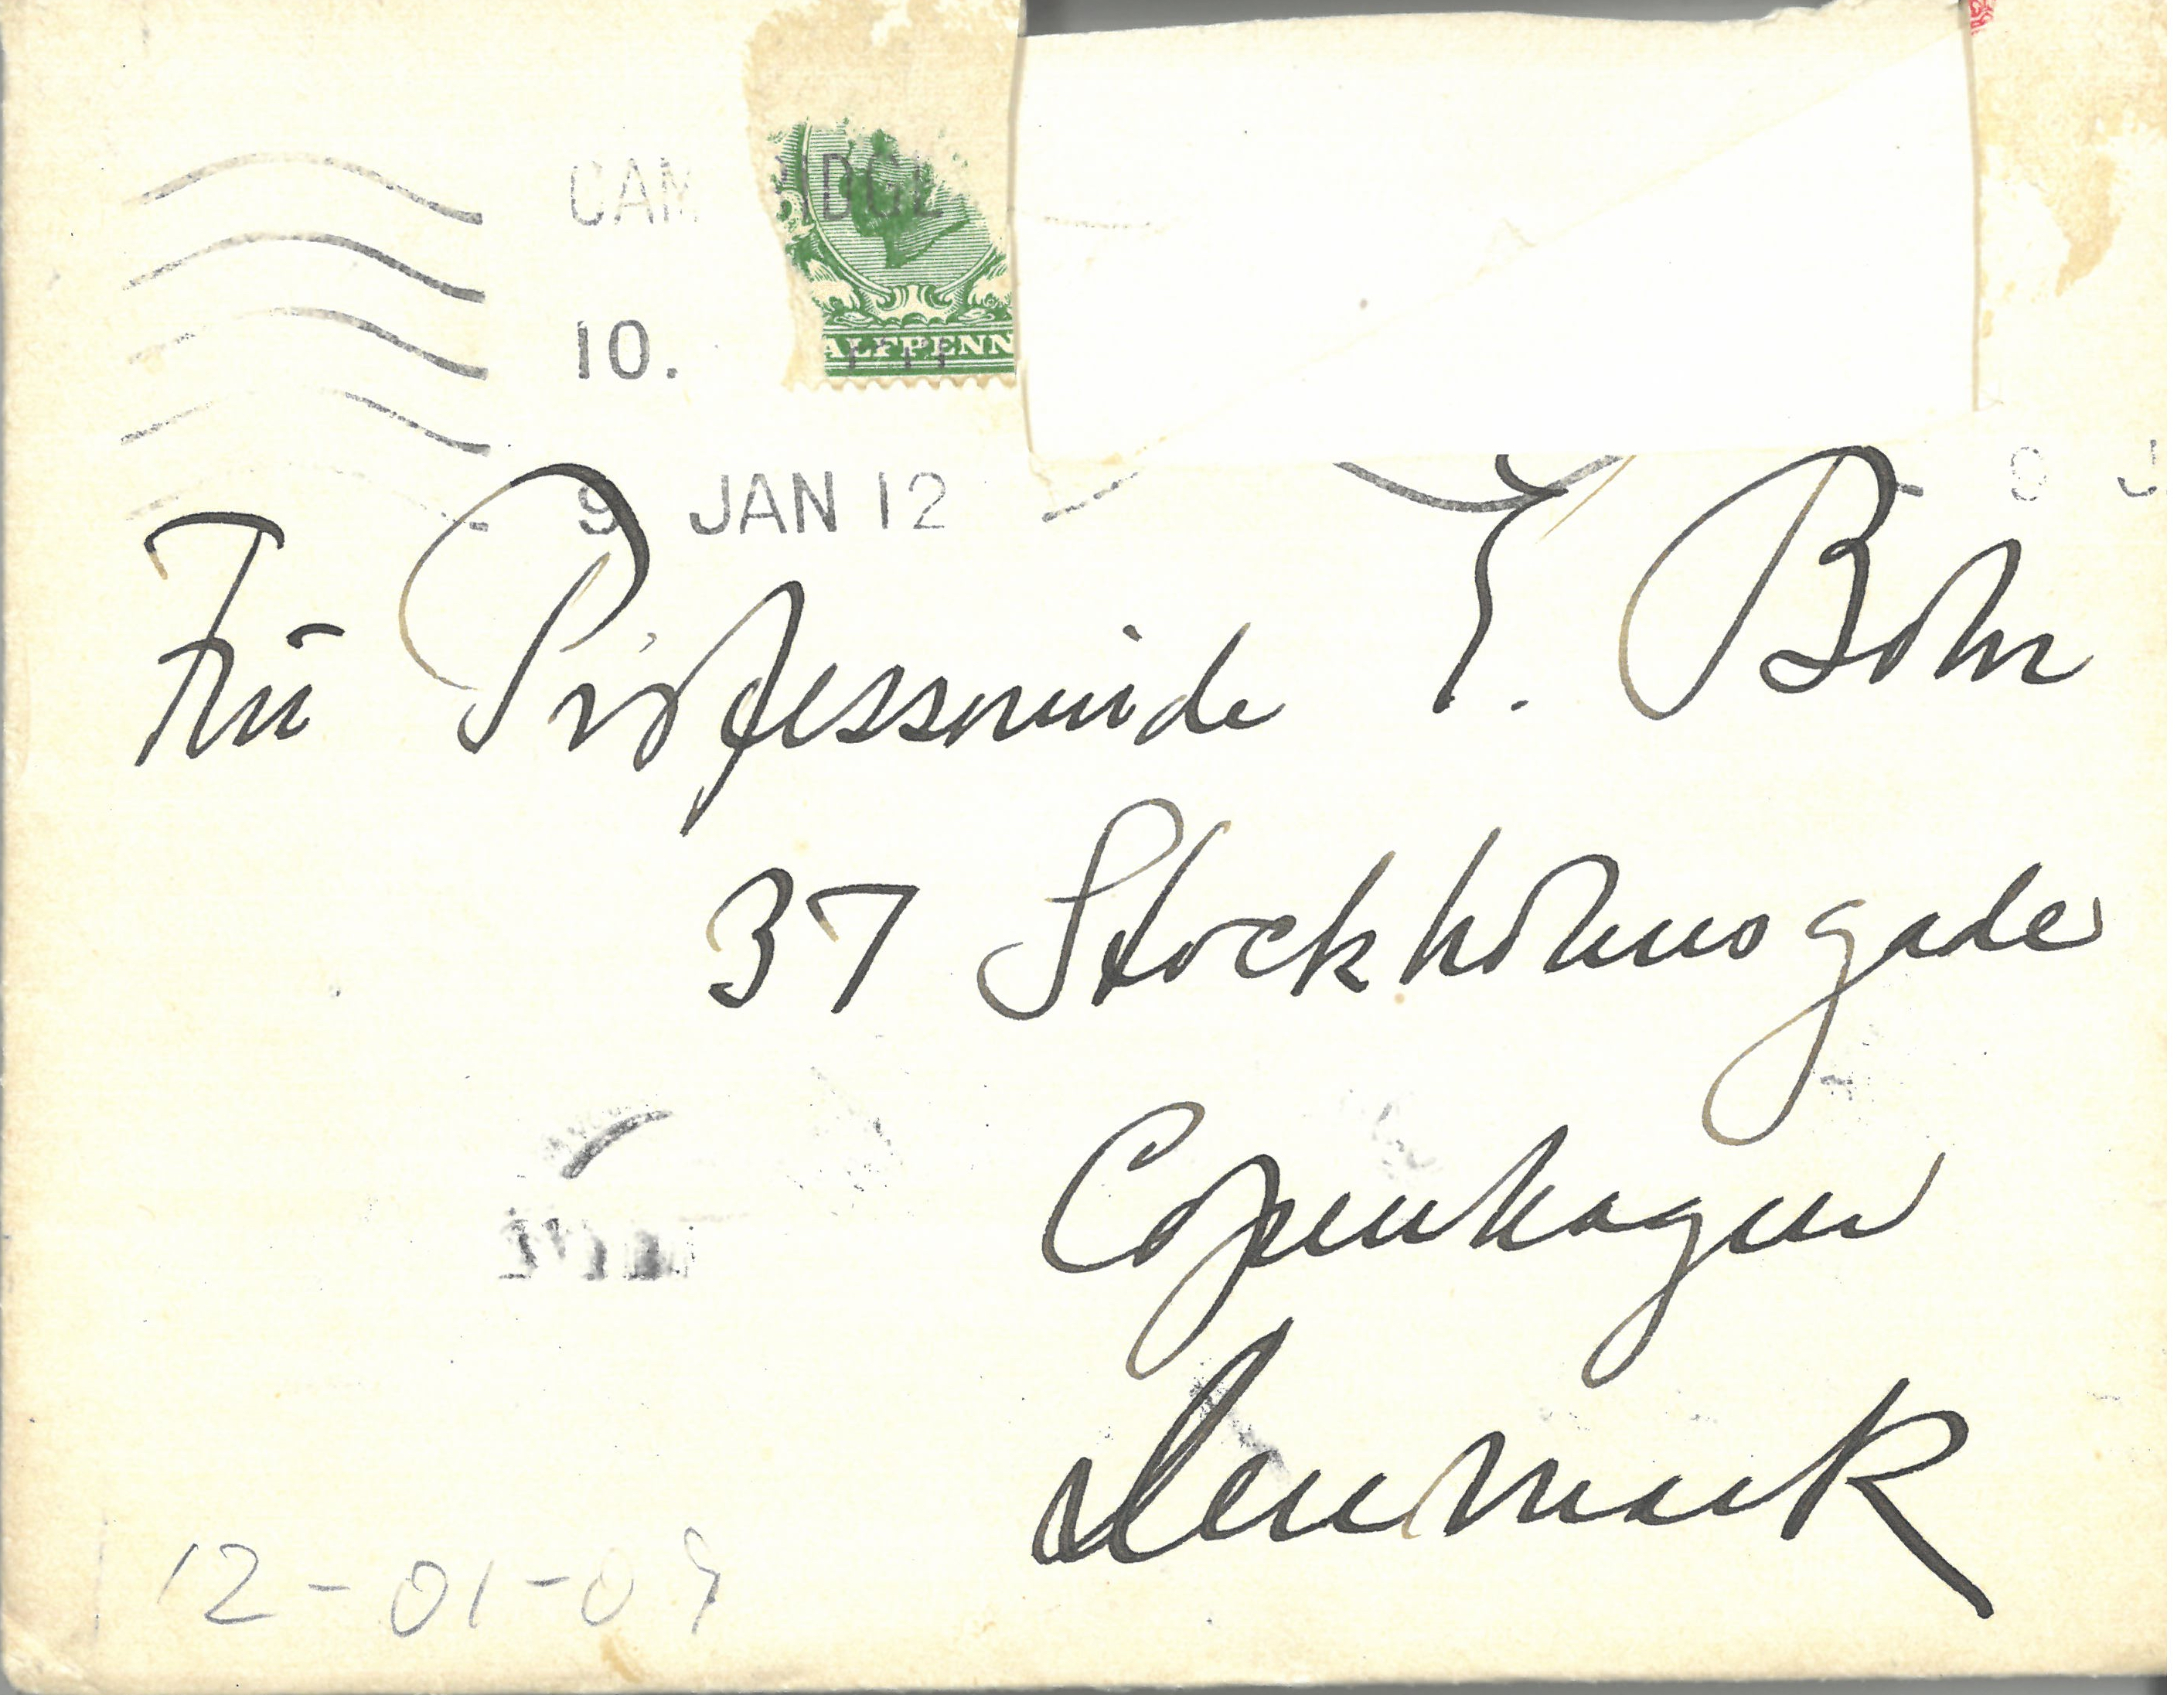 CAM RIDGE
10.
ALFPENN
9 JAN 12
Frū Professorinde E. Bohr
37 Stockholmsgade
Copenhagen
Denmark
12-01-09